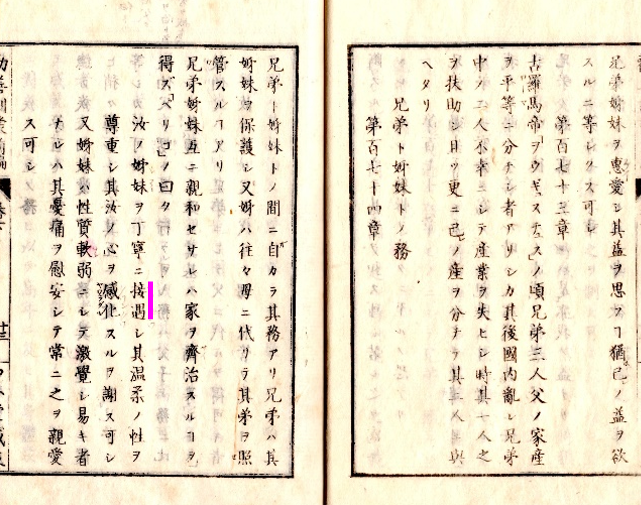 兄弟姉妹ヲ惠愛シ其益ヲ思フヿ猶己ノ益ヲ欲
スルニ等シクス可シ
第百七十三章
古羅馬帝ヲウギスチュス」ノ頃兄弟三人父ノ家産
ヲ平等ニ分チシ者アリシカ其後國内亂レ兄弟
中ノ二人不幸ニシテ産業ヲ失ヒシ時其一人之
ヲ扶助シ且ツ更ニ己ノ産ヲ分チテ其二人ニ與
ヘタリ
兄弟ト姉妹トノ務
第百七十四章
兄弟ト姉妹トノ間ニ自カラ其務アリ兄弟ハ其
姉妹ヲ保護シ又姉ハ往々母ニ代リテ其弟ヲ照
管スルヿアリ
兄弟姉妹互ニ親和セサレハ家ヲ齊治スルヿヲ
得ス「ペリコ」ノ曰ク
汝ノ姉妹ヲ丁寧ニ接遇シ其温柔ノ性ヲ
尊重シ其汝ノ心ヲ感化スルヲ謝ス可シ
又姉妹ハ性質軟弱ニシテ激覺シ易キ者
ナレハ其憂痛ヲ慰安シテ常ニ之ヲ親愛
ス可シ